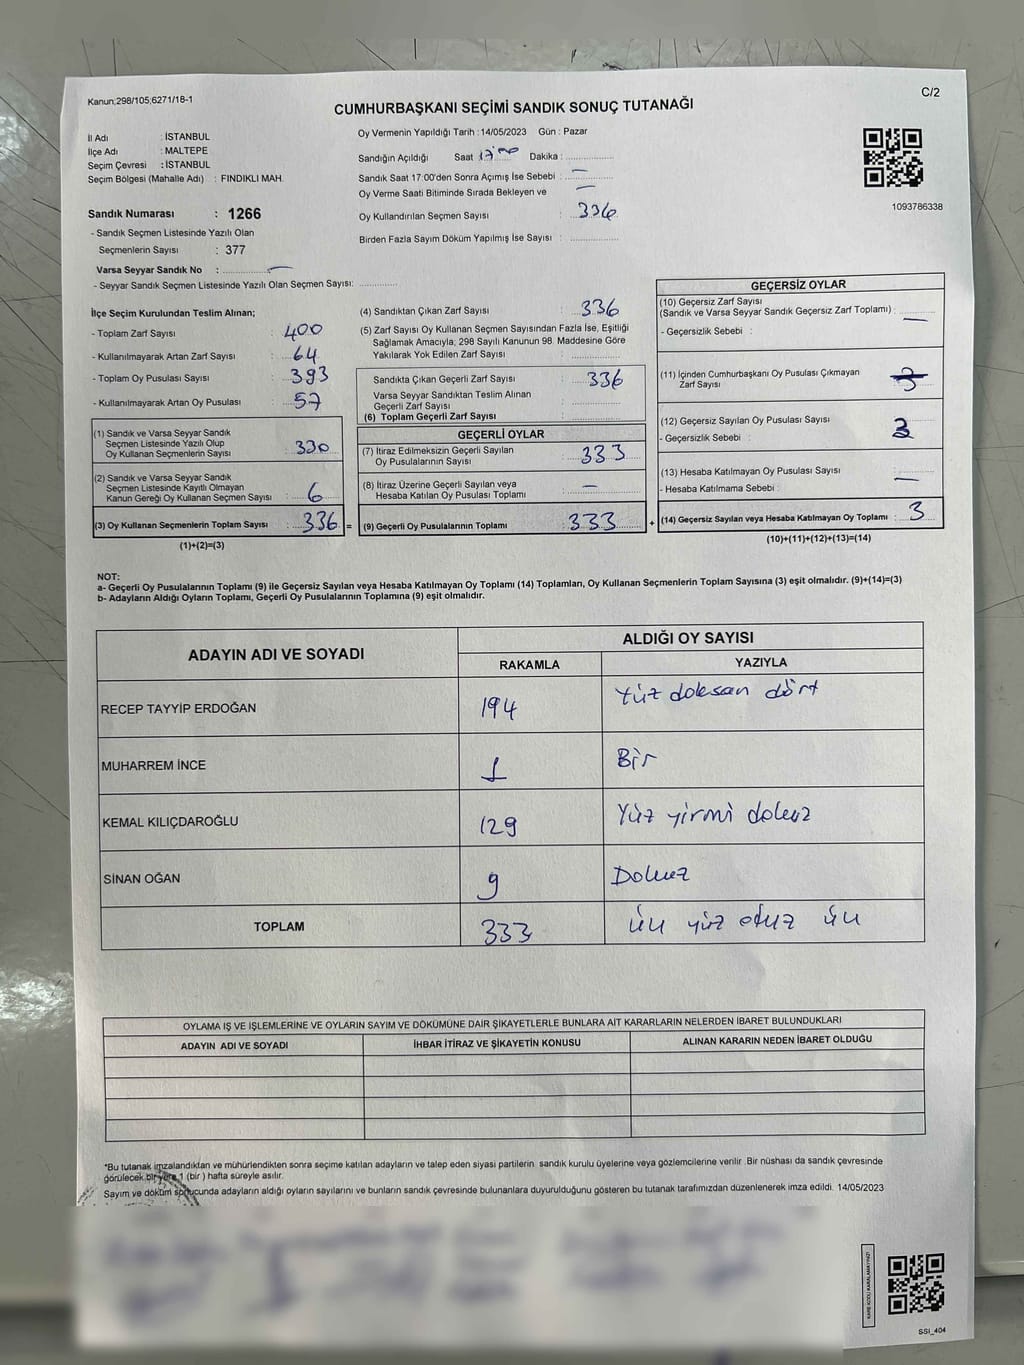 Kanun;298/105;6271/18-1
C/2
CUMHURBAŞKANI SEÇİMİ SANDIK SONUÇ TUTANAĞI
İl Adı : İSTANBUL
İlçe Adı : MALTEPE
Seçim Çevresi : İSTANBUL
Seçim Bölgesi (Mahalle Adı) : FINDIKLI MAH.
Sandık Numarası : 1266
- Sandık Seçmen Listesinde Yazılı Olan
Seçmenlerin Sayısı : 377
Varsa Seyyar Sandık No :
- Seyyar Sandık Seçmen Listesinde Yazılı Olan Seçmen Sayısı:
Oy Vermenin Yapıldığı Tarih : 14/05/2023 Gün : Pazar
Sandığın Açıldığı Saat 17:00 Dakika :
Sandık Saat 17:00'den Sonra Açımış İse Sebebi :
Oy Verme Saati Bitiminde Sırada Bekleyen ve
Oy Kullandırılan Seçmen Sayısı : 336
Birden Fazla Sayım Döküm Yapılmış İse Sayısı :
1093786338
İlçe Seçim Kurulundan Teslim Alınan;
- Toplam Zarf Sayısı : 400
- Kullanılmayarak Artan Zarf Sayısı : 64
- Toplam Oy Pusulası Sayısı : 393
- Kullanılmayarak Artan Oy Pusulası : 57
(1) Sandık ve Varsa Seyyar Sandık
Seçmen Listesinde Yazılı Olup
Oy Kullanan Seçmenlerin Sayısı : 330
(2) Sandık ve Varsa Seyyar Sandık
Seçmen Listesinde Kayıtlı Olmayan
Kanun Gereği Oy Kullanan Seçmen Sayısı : 6
(3) Oy Kullanan Seçmenlerin Toplam Sayısı : 336 =
(1)+(2)=(3)
(4) Sandıktan Çıkan Zarf Sayısı : 336
(5) Zarf Sayısı Oy Kullanan Seçmen Sayısından Fazla İse, Eşitliği
Sağlamak Amacıyla; 298 Sayılı Kanunun 98. Maddesine Göre
Yakılarak Yok Edilen Zarf Sayısı :
Sandıkta Çıkan Geçerli Zarf Sayısı : 336
Varsa Seyyar Sandıktan Teslim Alınan
Geçerli Zarf Sayısı :
(6) Toplam Geçerli Zarf Sayısı :
GEÇERLİ OYLAR
(7) İtiraz Edilmeksizin Geçerli Sayılan
Oy Pusulalarının Sayısı : 333
(8) İtiraz Üzerine Geçerli Sayılan veya
Hesaba Katılan Oy Pusulası Toplamı :
(9) Geçerli Oy Pusulalarının Toplamı : 333 +
GEÇERSİZ OYLAR
(10) Geçersiz Zarf Sayısı
(Sandık ve Varsa Seyyar Sandık Geçersiz Zarf Toplamı) :
- Geçersizlik Sebebi :
(11) İçinden Cumhurbaşkanı Oy Pusulası Çıkmayan
Zarf Sayısı : 3
(12) Geçersiz Sayılan Oy Pusulası Sayısı : 3
- Geçersizlik Sebebi :
(13) Hesaba Katılmayan Oy Pusulası Sayısı :
- Hesaba Katılmama Sebebi :
(14) Geçersiz Sayılan veya Hesaba Katılmayan Oy Toplamı : 3
(10)+(11)+(12)+(13)=(14)
NOT:
a- Geçerli Oy Pusulalarının Toplamı (9) ile Geçersiz Sayılan veya Hesaba Katılmayan Oy Toplamı (14) Toplamları, Oy Kullanan Seçmenlerin Toplam Sayısına (3) eşit olmalıdır. (9)+(14)=(3)
b- Adayların Aldığı Oyların Toplamı, Geçerli Oy Pusulalarının Toplamına (9) eşit olmalıdır.
ADAYIN ADI VE SOYADI
ALDIĞI OY SAYISI
RAKAMLA YAZIYLA
RECEP TAYYİP ERDOĞAN 194 Yüz doksan dört
MUHARREM İNCE 1 Bir
KEMAL KILIÇDAROĞLU 129 Yüz yirmi dokuz
SİNAN OĞAN 9 Dokuz
TOPLAM 333 üç yüz otuz üç
OYLAMA İŞ VE İŞLEMLERİNE VE OYLARIN SAYIM VE DÖKÜMÜNE DAİR ŞİKAYETLERLE BUNLARA AİT KARARLARIN NELERDEN İBARET BULUNDUKLARI
ADAYIN ADI VE SOYADI İHBAR İTİRAZ VE ŞİKAYETİN KONUSU ALINAN KARARIN NEDEN İBARET OLDUĞU
*Bu tutanak imzalandıktan ve mühürlendikten sonra seçime katılan adayların ve talep eden siyasi partilerin sandık kurulu üyelerine veya gözlemcilerine verilir. Bir nüshası da sandık çevresinde
görülecek bir yere 1 (bir) hafta süreyle asılır.
Sayım ve döküm sonucunda adayların aldığı oyların sayılarını ve bunların sandık çevresinde bulunanlara duyurulduğunu gösteren bu tutanak tarafımızdan düzenlenerek imza edildi. 14/05/2023
SSI_404